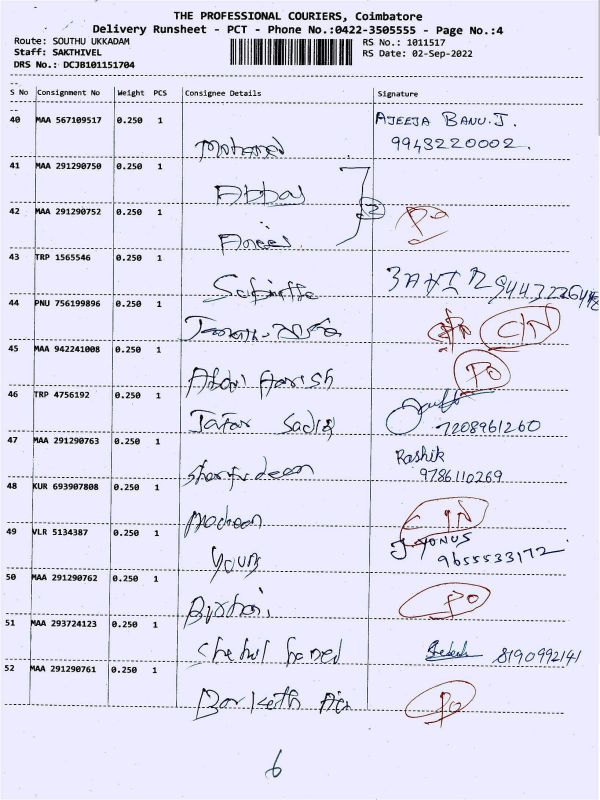 THE PROFESSIONAL COURIERS, Coimbatore
Delivery Runsheet - PCT - Phone No.:0422-3505555 - Page No.:4
Route: SOUTHU UKKADAM
RS No.: 1011517
Staff: SAKTHIVEL
RS Date: 02-Sep-2022
DRS No.: DCJB101151704
S No Consignment No Weight PCS Consignee Details Signature
40 MAA 567109517 0.250 1 AJEEJA BANU.J.
9943220002.
41 MAA 291290750 0.250 1
Abbas
2
42 MAA 291290752 0.250 1 PO
43 TRP 1565546 0.250 1
44 PNU 756199896 0.250 1
C/N
45 MAA 942241008 0.250 1 PO
Abdul Harish
46 TRP 4756192 0.250 1
Jafar Sadiq 7208961260
47 MAA 291290763 0.250 1 Rashik
Sharfudeen 9786110269
48 KUR 693907808 0.250 1 C/N
49 VLR 5134387 0.250 1 J YONUS
9655533172
50 MAA 291290762 0.250 1 PO
51 MAA 293724123 0.250 1
8190992141
52 MAA 291290761 0.250 1
PO
6